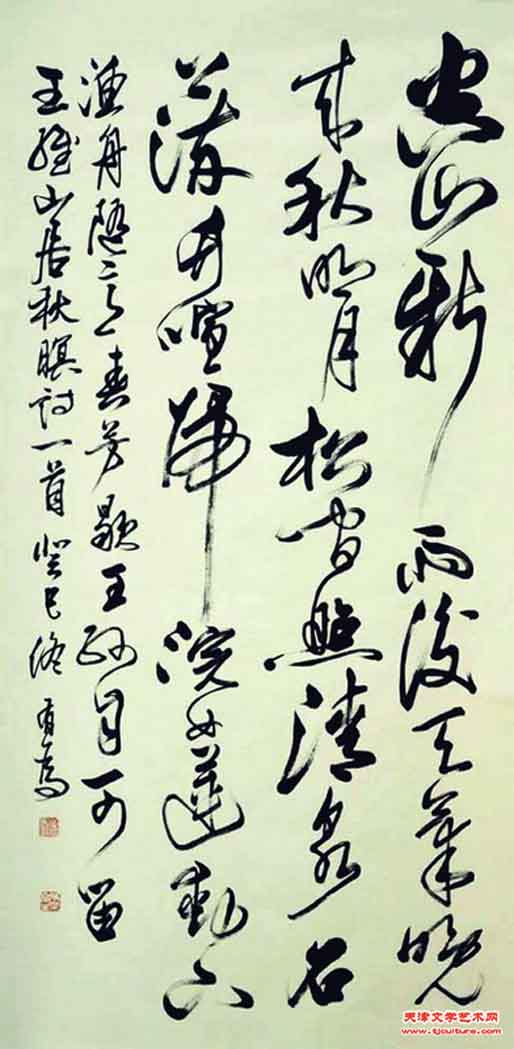 空山新雨後天氣晚
来秋明月松间照清泉石
上流竹喧歸浣女蓮動下
渔舟隨意春芳歇王孫自可留
王维山居秋暝诗一首 癸巳
天津文学艺术网
www.tjculture.com